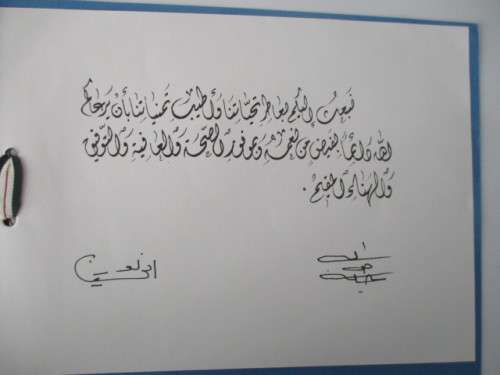 نبعث إليكم بعاطر تحياتنا وأطيب تمنياتنا بأن يرعاكم
الله دائماً بفيض من نعمه وموفور الصحة والعافية والتوفيق
والهناء المقيم .